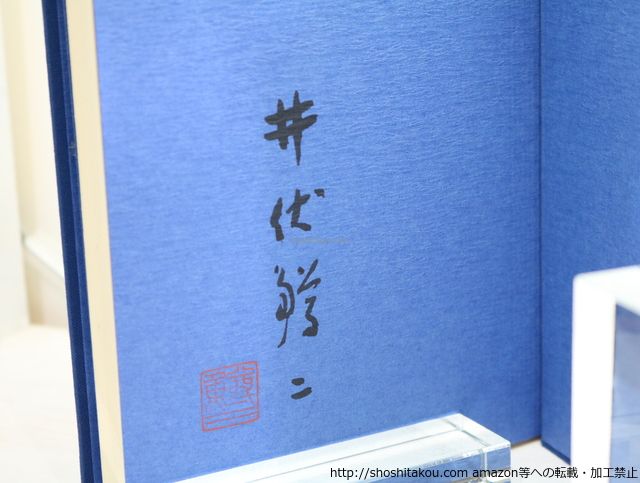 井伏鱒二
http://shoshitakou.com amazon等への転載・加工禁止